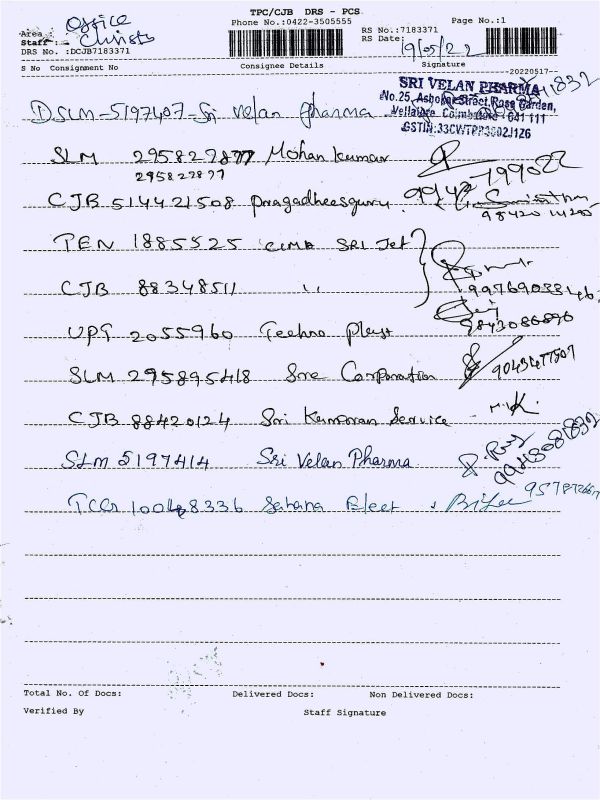 TPC/CJB DRS - PCS
Phone No.:0422-3505555 Page No.:1
Area : Office
Staff : Christs
RS No.:7183371
RS Date: 19/05/22
DRS No. :DCJB7183371
S No Consignment No Consignee Details Signature
20220517
SRI VELAN PHARMA
No.25, Ashokar Street, Rose Garden,
Vellalore, Coimbatore - 641 111
GSTIN:33CWTPP3602J126
DSLM-5197407-Sri Velan pharma
SLM 295827877 Mohan kumar
295827877
CJB 514421508 pragadheesguru.
98420 14205
TEN 1885525 CIMA SRI Jet
CJB 88348511 ''
9976903346
9843086696
UPT 2055960 Techno Plast
SLM 295895418 Sree Corporation 9043477507
CJB 88420124 Sri Kumaran Service - M.K.
SLM 5197414 Sri Velan Pharma
9948081832
TCG 100488336 Sahana Elect
Total No. Of Docs: Delivered Docs: Non Delivered Docs:
Verified By Staff Signature